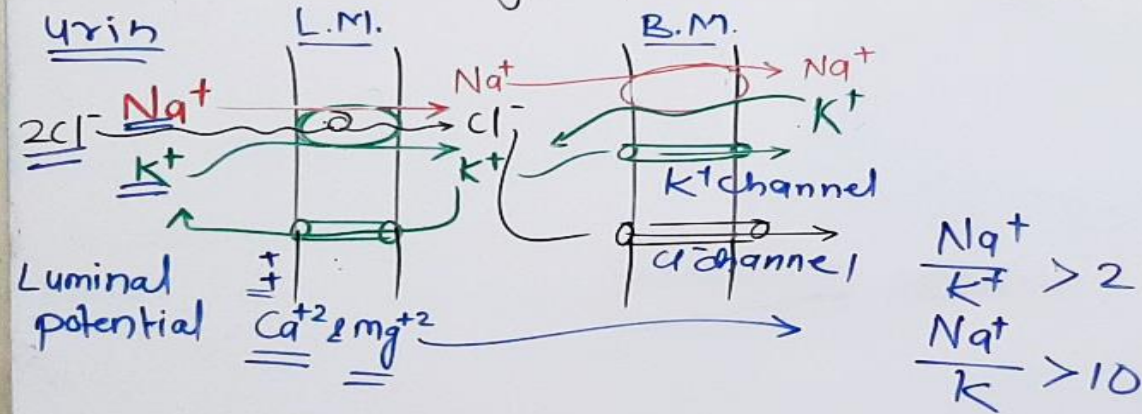 urin L.M. B.M.
Na⁺ Na⁺ Na⁺
2Cl⁻ Cl⁻ K⁺
K⁺ K⁺
K⁺ channel
Cl⁻channel
Luminal
potential
++
Ca⁺² & mg⁺²
Na⁺/K⁺ > 2
Na⁺/K > 10